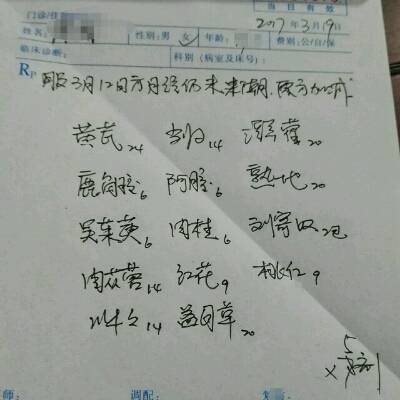 当日有效
门诊/住
2017年3月19日
姓名: 性别:男 女✓ 年龄: 费别:公/自/保
临床诊断: 科别(病室及床号):
Rp 服3月12日方月经仍未来潮.原方加减
黄芪24 当归14 淫羊藿20
鹿角胶6 阿胶6 熟地20
吴茱萸6 肉桂6 刘寄奴20
肉苁蓉14 红花9 桃仁9
川牛夕14 益母草20
5
×剂
师: 调配: